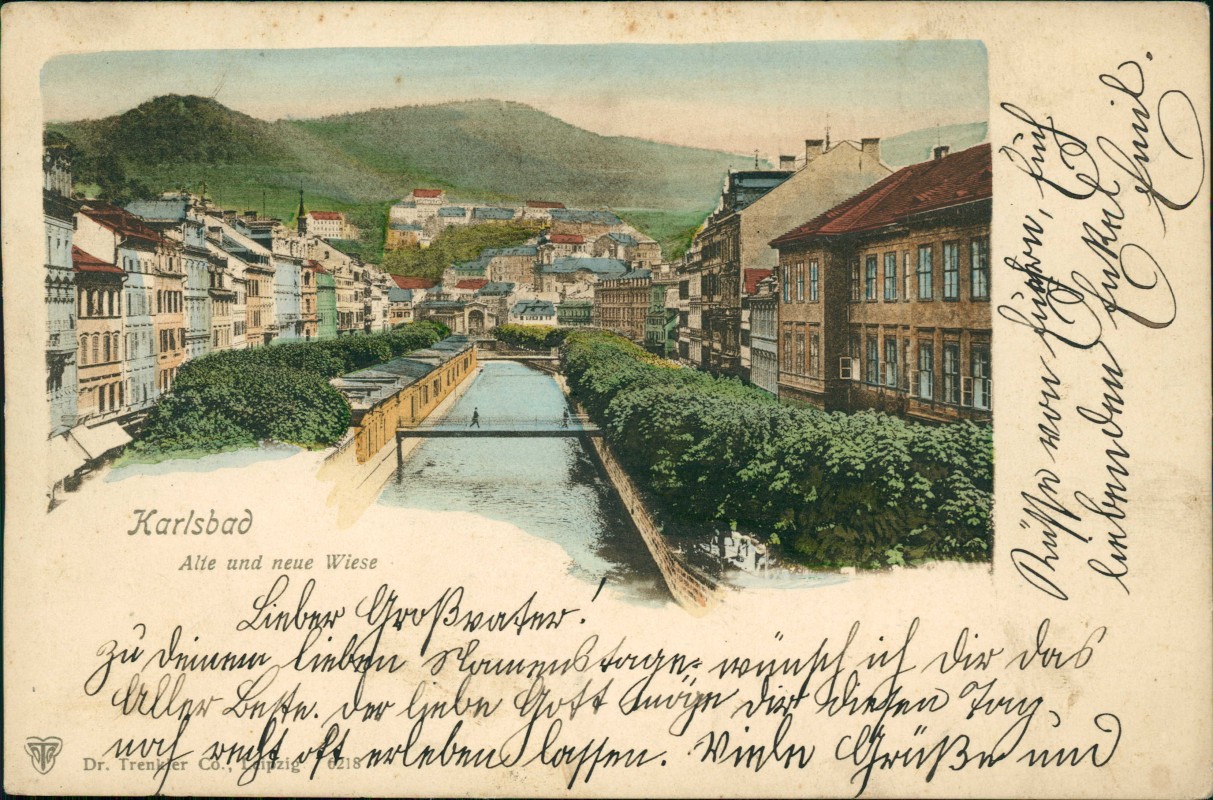 Karlsbad
Alte und neue Wiese
Lieber Großvater!
Zu Deinem lieben Namenstage wünsch ich Dir das
Aller Beste. Der liebe Gott möge Dir diesen Tag
noch recht oft erleben lassen. Viele Grüße und
Dr. Trenkler Co., Leipzig 6218
Küsse von Euch
liebenden Enkel Emil.